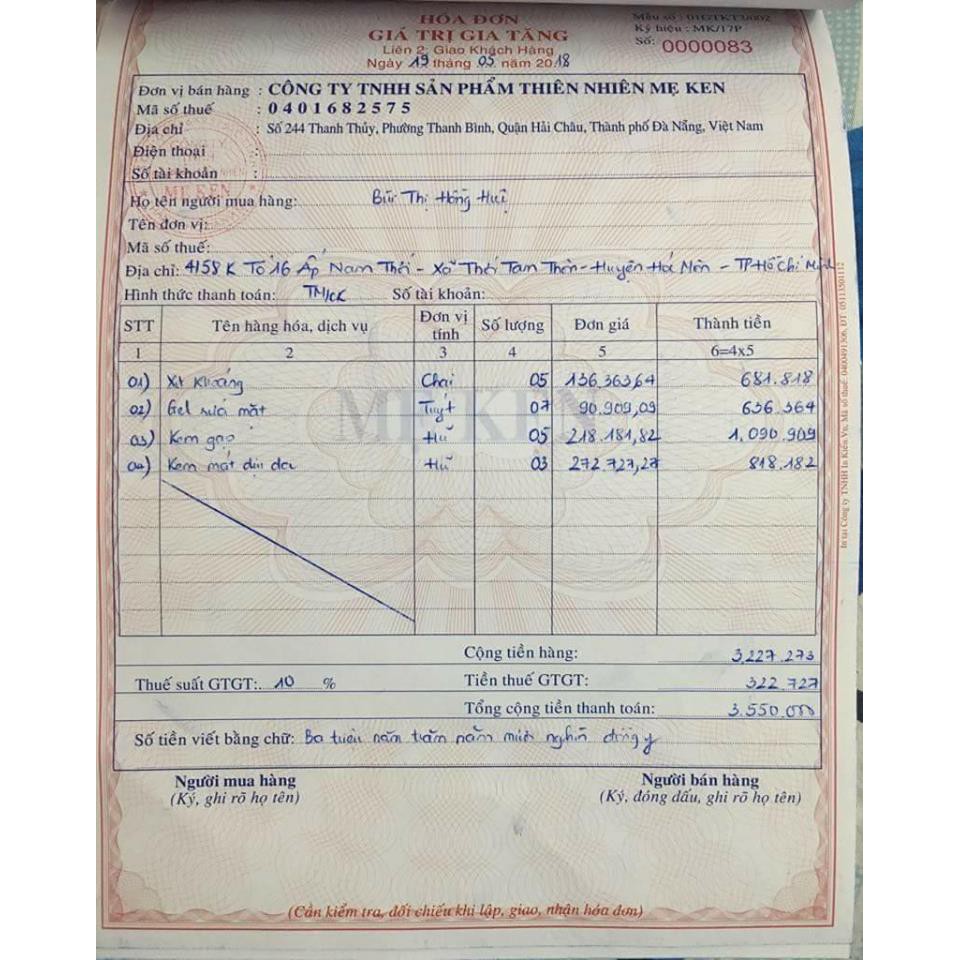 HÓA ĐƠN
GIÁ TRỊ GIA TĂNG
Liên 2: Giao Khách Hàng
Ngày 19 tháng 05 năm 2018
Mẫu số : 01GTKT3/002
Ký hiệu : MK/17P
Số: 0000083
Đơn vị bán hàng : CÔNG TY TNHH SẢN PHẨM THIÊN NHIÊN MẸ KEN
Mã số thuế : 0401682575
Địa chỉ : Số 244 Thanh Thủy, Phường Thanh Bình, Quận Hải Châu, Thành phố Đà Nẵng, Việt Nam
Điện thoại :
Số tài khoản :
MẸ KEN
Họ tên người mua hàng: Bùi Thị Hồng Huệ
Tên đơn vị:
Mã số thuế:
Địa chỉ: 4158K Tổ 16 Ấp Nam Thới - Xã Thới Tam Thôn - Huyện Hóc Môn - TP Hồ Chí Minh
Hình thức thanh toán: TM/CK Số tài khoản:
STT Tên hàng hóa, dịch vụ Đơn vị tính Số lượng Đơn giá Thành tiền
1 2 3 4 5 6=4x5
01) Xịt khoáng Chai 05 136.363,64 681.818
02) Gel rửa mặt Tuýt 07 90.909,09 636.364
03) Kem Hũ 05 218.181,82 1.090.909
04) Kem mát dịu da Hũ 03 272.727,27 818.182
MẸ KEN
Cộng tiền hàng: 3.227.273
Thuế suất GTGT: 10 % Tiền thuế GTGT: 322.727
Tổng cộng tiền thanh toán: 3.550.000
Số tiền viết bằng chữ: Ba triệu năm trăm năm mươi nghìn đồng y
Người mua hàng Người bán hàng
(Ký, ghi rõ họ tên) (Ký, đóng dấu, ghi rõ họ tên)
(Cần kiểm tra, đối chiếu khi lập, giao, nhận hóa đơn)
In tại Công ty TNHH In Kiến Vn, Mã số thuế: 0400491306, ĐT: 05113501112